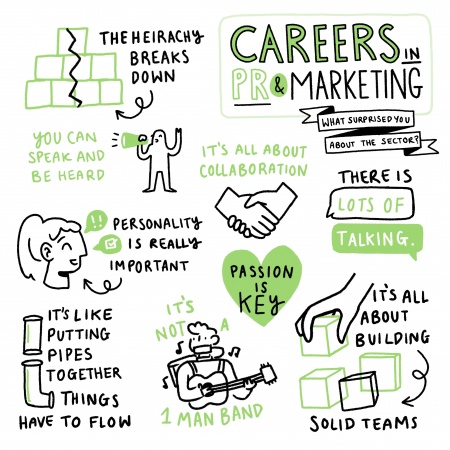 THE HEIRACHY
BREAKS
DOWN
CAREERS IN
PR & MARKETING
WHAT SURPRISED YOU
ABOUT THE SECTOR?
YOU CAN
SPEAK AND
BE HEARD
IT'S ALL ABOUT
COLLABORATION
THERE IS
LOTS OF
TALKING.
!!
PERSONALITY
IS REALLY
IMPORTANT
PASSION
IS
KEY
IT'S LIKE
PUTTING
PIPES
TOGETHER
THINGS
HAVE TO FLOW
IT'S
NOT A
1 MAN BAND
IT'S ALL
ABOUT
BUILDING
SOLID TEAMS